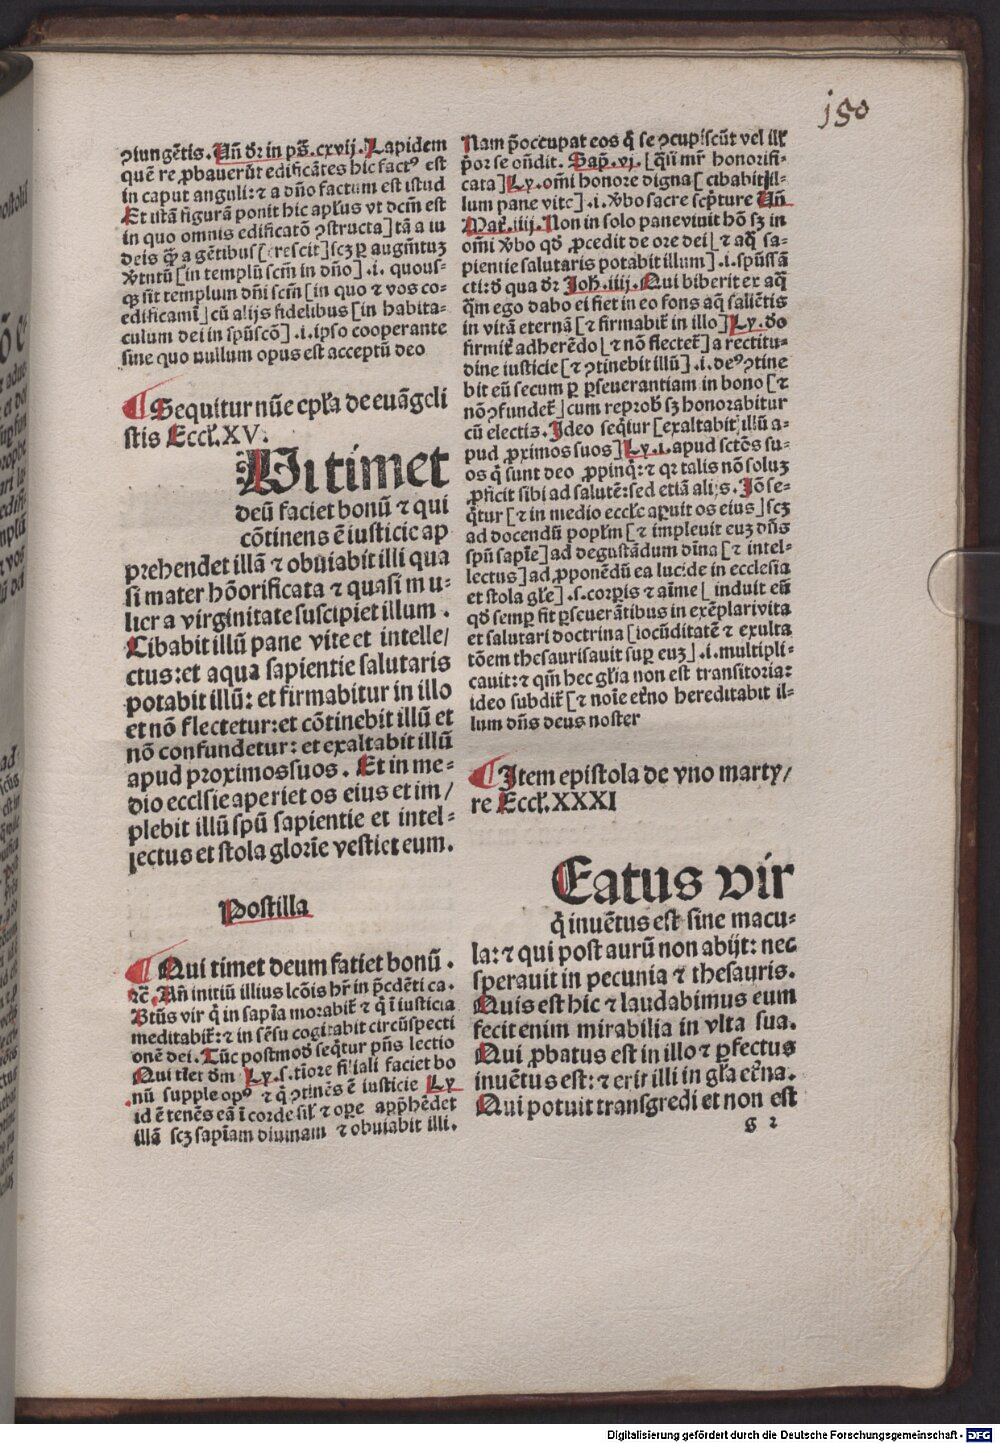 150
ꝯiungētis. Uñ dr̄ in ps̄. cxvij. Lapidem
quē reꝓbauerūt edificātes hic factꝰ est
in caput anguli: ⁊ a dño factum est istud
Et istā figurā ponit hic apl̄us vt dcm̄ est
in quo omnis edificatō ꝯstructa] tā a iu
deis q̄ꝫ a gētibus [crescit] scꝫ ꝑ augm̄tuꝫ
v̄tutū [in templū scm̄ in dño] .i. quous-
qꝫ sit templum dñi scm̄ [in quo ⁊ vos co-
edificami] cū alijs fidelibus [in habita-
culum dei in spūscō] .i. ipso cooperante
sine quo nullum opus est acceptū deo
¶ Sequitur nūc epl̄a de euāgeli
stis Eccl̄. XV.
Ui timet
deū faciet bonū ⁊ qui
cōtinens ē iusticie ap
prehendet illā ⁊ obuiabit illi qua
si mater hōorificata ⁊ quasi mu-
lier a virginitate suscipiet illum.
Cibabit illū pane vite et intelle/
ctus: et aqua sapientie salutaris
potabit illū: et firmabitur in illo
et nō flectetur: et cōtinebit illū et
nō confundetur: et exaltabit illū
apud proximos suos. Et in me-
dio ecclsie aperiet os eius et im/
plebit illū spū sapientie et intel-
lectus et stola glorie vestiet eum.
Postilla
¶ Qui timet deum fatiet bonū.
⁊c̄. Añ initiū illius lcōis hr̄ in p̄cdēti ca.
Btūs vir q̄ in sapīa morabit̄ ⁊ q̄ ī iusticia
meditabit̄: ⁊ in sēsu cogitabit circūspecti
onē dei. Tūc postmodū seq̄tur pñs lectio
Qui timet dm̄ Ly. s. timore filiali faciet bo
nū supple opꝰ ⁊ q̄ ꝯtinēs ē iusticie Ly
id ē tenēs eā ī corde sil̄ ⁊ oꝑe apprhēdet
illā scꝫ sapīam diuinam ⁊ obuiabit illi.
Nam p̄occupat eos q̄ se ꝯcupiscūt vel ill̄
p̄or se oñdit. Sap̄. vj. [q̄si mr̄ honorifi-
cata] Ly. om̄i honore digna [cibabit il-
lum pane vite] .i. v̄bo sacre scp̄ture Uñ
Mat̄. iiij. Non in solo pane viuit hō sꝫ in
om̄i v̄bo qd̄ ꝓcedit de ore dei [⁊ aq̄ sa-
pientie salutaris potabit illum] .i. spūssā
cti: d̄ qua dr̄ Joh̄. iiij. Qui biberit ex aq̄
q̄m ego dabo ei fiet in eo fons aq̄ saliētis
in vitā eternā [⁊ firmabit̄ in illo] Ly. d̄o
firmit̄ adherēdo [⁊ nō flectet̄] a rectitu-
dine iusticie [⁊ ꝯtinebit illū] .i. deꝰ ꝯtine
bit eū secum ꝑ ꝑseuerantiam in bono [⁊
nō ꝯfundet̄] cum reprob̄ sꝫ honorabitur
cū electis. Ideo seq̄tur [exaltabit illū a-
pud ꝓximos suos] Ly. i. apud sctōs su-
os q̄ sunt deo ꝓpinq̄: ⁊ qꝛ talis nō soluꝫ
ꝓficit sibi ad salutē: sed etiā alijs. Iō se-
q̄tur [⁊ in medio eccl̄e aperuit os eius] scꝫ
ad docendū popl̄m [⁊ impleuit euꝫ dñs
spū sapīe] ad degustādum dīna [⁊ intel-
lectus] ad ꝓponēdū ea lucide in ecclesia
et stola gl̄e] .s. corꝑis ⁊ aīme [induit eū
qd̄ semꝑ fit ꝑseuerātibus in exēplari vita
et salutari doctrina [iocūditatē ⁊ exulta
tōem thesaurisauit suꝑ euꝫ] .i. multipli-
cauit: ⁊ qm̄ hec gl̄ia non est transitoria:
ideo subdit̄ [⁊ noīe et̄no hereditabit il-
lum dñs deus noster
¶ Item epistola de vno marty/
re Eccl̄. XXXI
Eatus vir
q̄ inuētus est sine macu-
la: ⁊ qui post aurū non abijt: nec
sperauit in pecunia ⁊ thesauris.
Quis est hic ⁊ laudabimus eum
fecit enim mirabilia in vita sua.
Qui ꝓbatus est in illo ⁊ ꝑfectus
inuētus est: ⁊ erit illi in gl̄a et̄na.
Qui potuit transgredi et non est
g 2
Digitalisierung gefördert durch die Deutsche Forschungsgemeinschaft - DFG